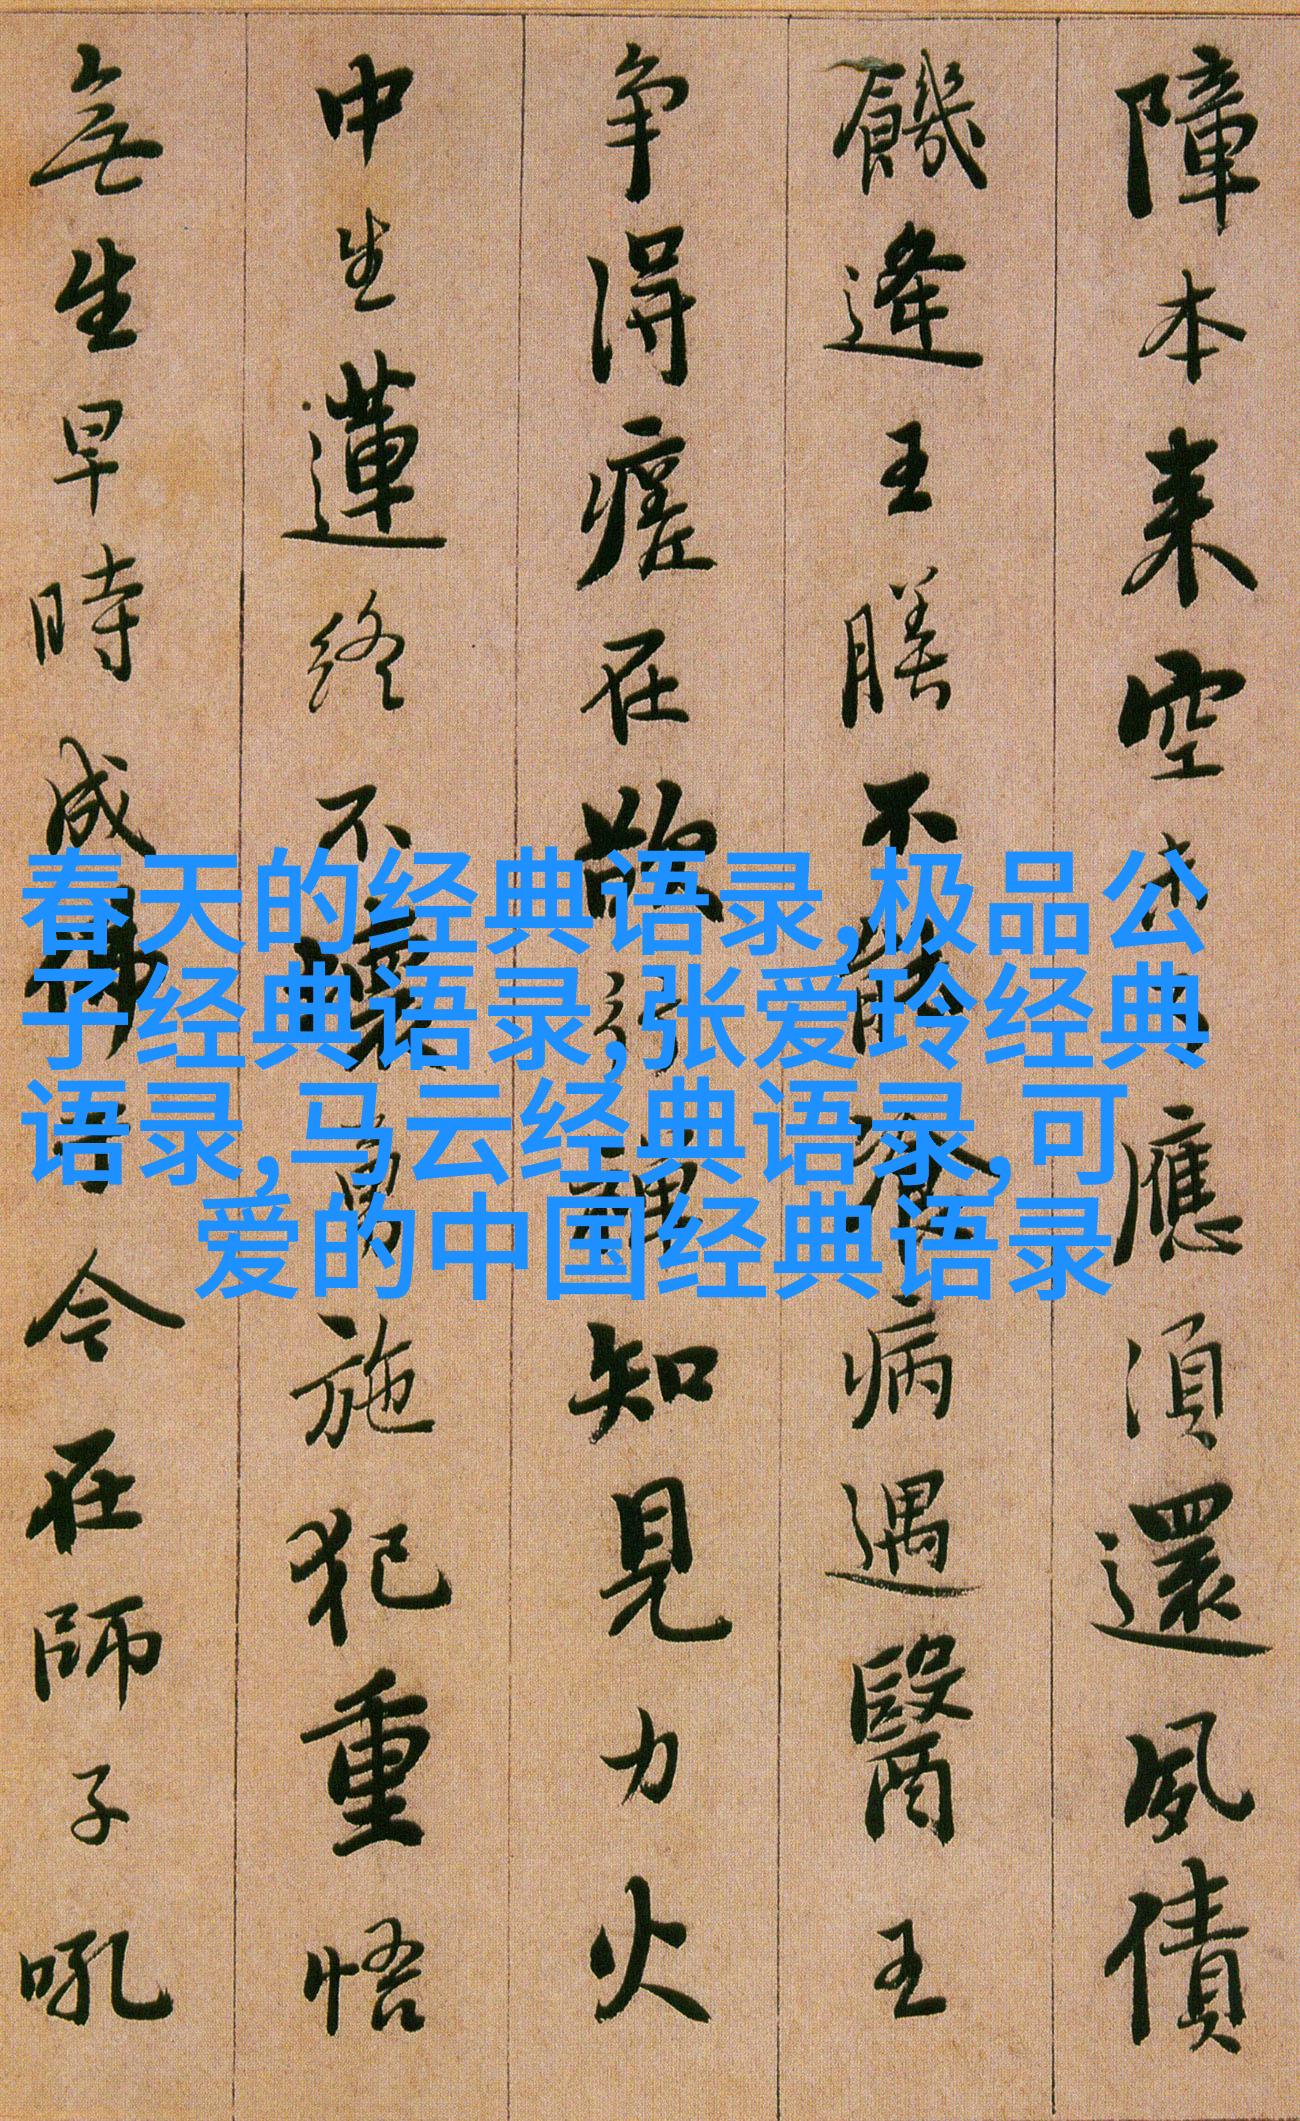 障本来空未了應須還夙債
饑逢王膳不能飡病遇醫王
争得瘥在欲行禪知見力火
中生蓮終不壞勇施犯重悟
無生早時成佛于今在師子吼
春天的经典语录,极品公
子经典语录,张爱玲经典
语录,马云经典语录,可
爱的中国经典语录